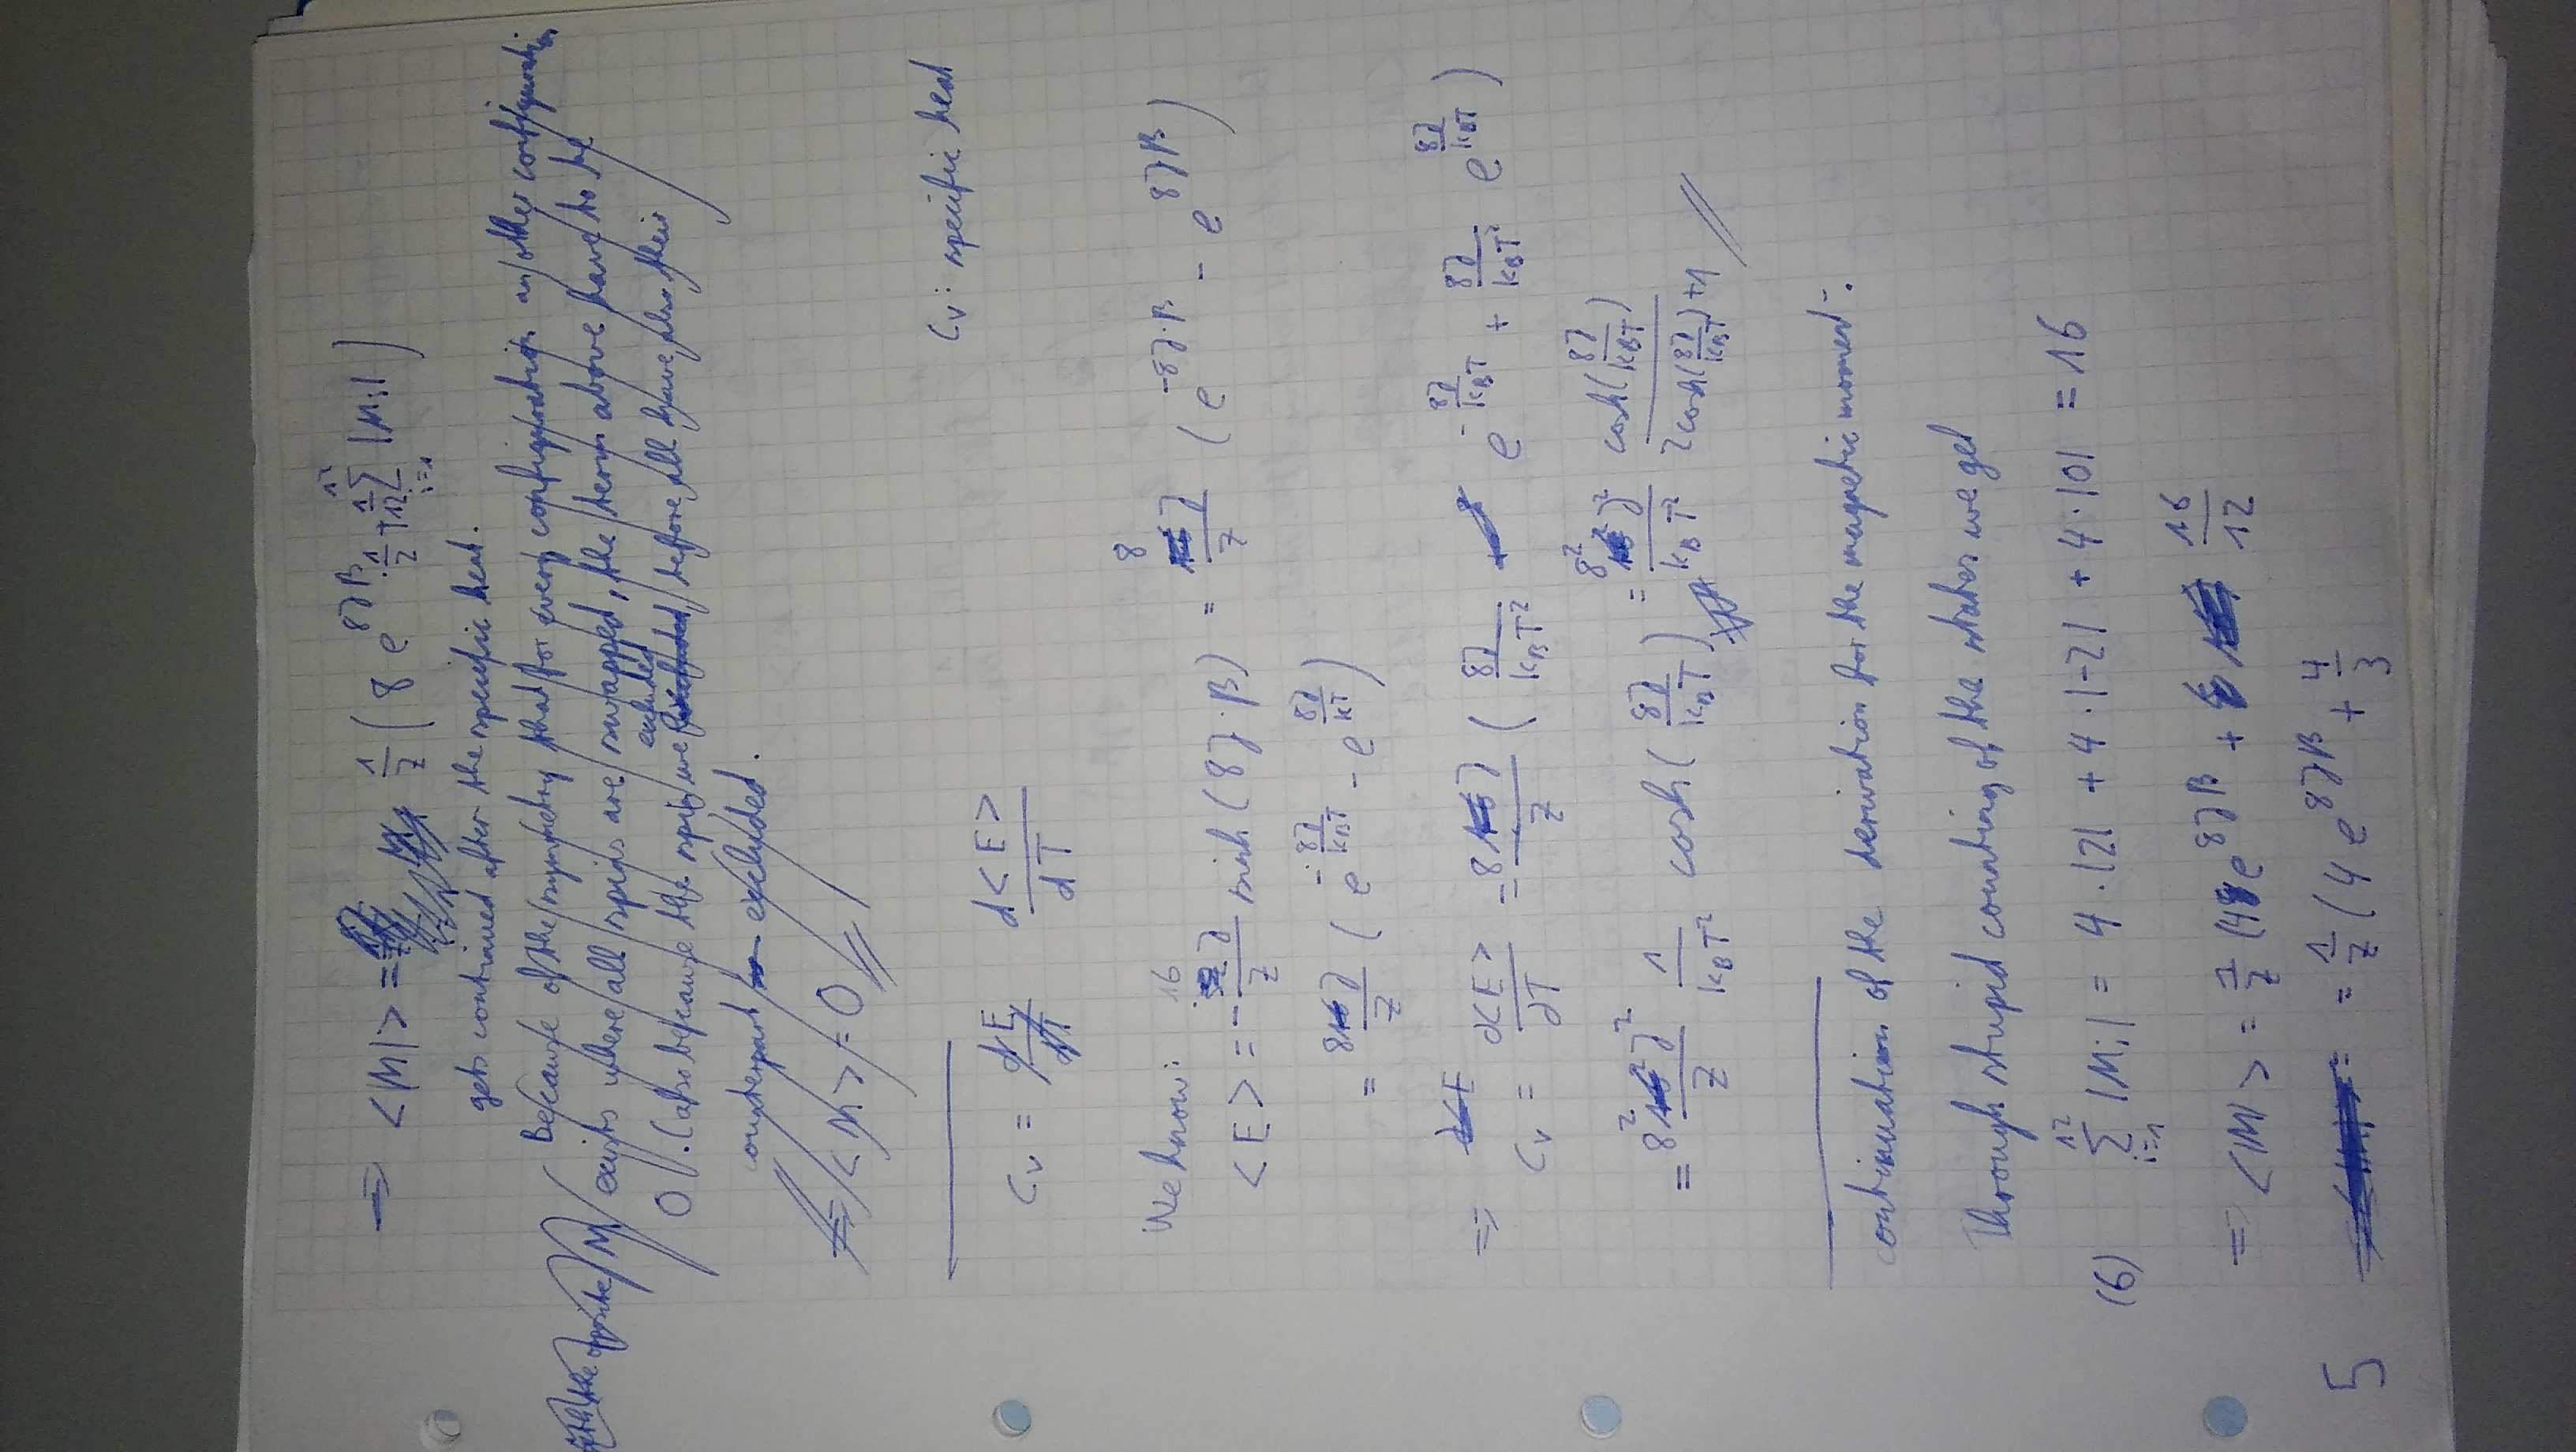 => <|M|> = 1/Z ( 8 e^{8Jβ} · 1/2 + 1/12 ∑_{i=1}^{12} |M_i| )
gets continued after the specific heat.
Because of the symmetry that for every configuration another configuration
with the opposite M exists where all spins are swapped, the term above have to be
0. (also because the spin we excluded before all have also their
counterpart excluded.
=> <M> = 0
C_v : specific heat
C_v = dE/dT d<E>/dT
We know:
<E> = - 16J/Z sinh(8J·β) = 8J/Z ( e^{-8J·β} - e^{8Jβ} )
= 8J/Z ( e^{-8J/k_BT} - e^{8J/kT} )
=> C_v = ∂<E>/∂T = 8J/Z ( 8J/k_BT² e^{-8J/k_BT} + 8J/k_BT² e^{8J/k_BT} )
= 8²J²/Z 1/k_BT² cosh(8J/k_BT) = 8²J²/k_BT² cosh(8J/k_BT)/2cosh(8J/k_BT)+1
continuation of the derivation for the magnetic moment:
Through stupid counting of the states we get
(6) ∑_{i=1}^{12} |M_i| = 4·|2| + 4·|-2| + 4·|0| = 16
=> <|M|> = 1/Z (4 e^{8Jβ} + 16/12
5 = 1/Z (4 e^{8Jβ} + 4/3